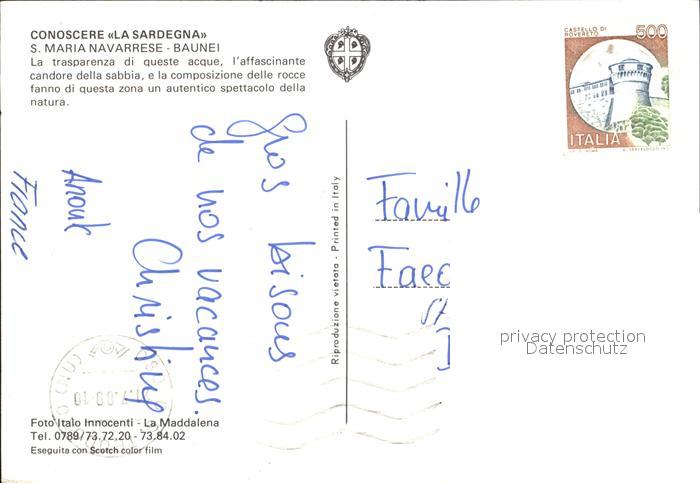 CONOSCERE «LA SARDEGNA»
S. MARIA NAVARRESE - BAUNEI
La trasparenza di queste acque, l'affascinante
candore della sabbia, e la composizione delle rocce
fanno di questa zona un autentico spettacolo della
natura.
CASTELLO DI
ROVERETO
500
ITALIA
Gros bisous
de nos vacances.
Christine
Anouk
France
Riproduzione vietata - Printed in Italy
Famille
Faec
privacy protection
Datenschutz
Foto Italo Innocenti - La Maddalena
Tel. 0789/73.72.20 - 73.84.02
Eseguita con Scotch color film